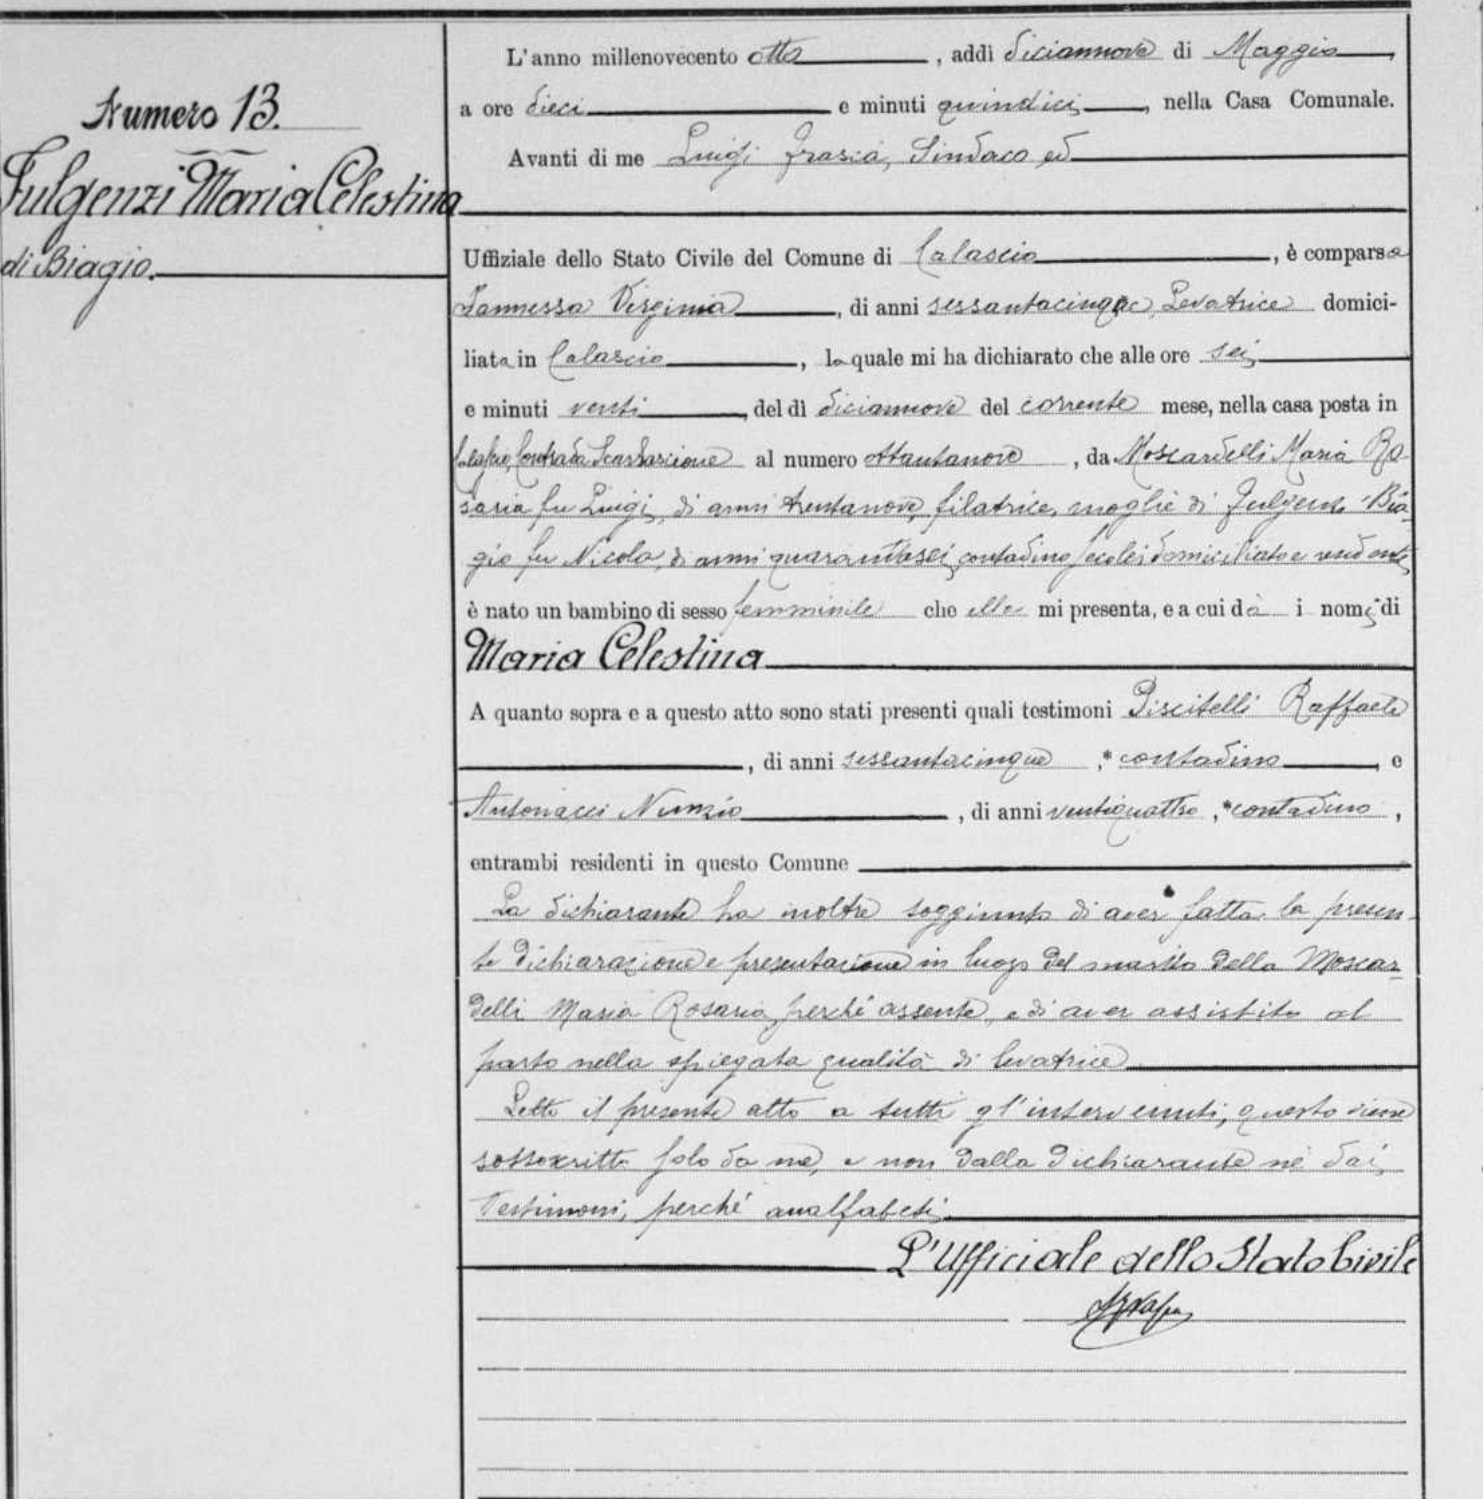 Numero 13.
Fulgenzi Maria Celestina
di Biagio.
L'anno millenovecento otto, addì diciannove di Maggio,
a ore dieci e minuti quindici, nella Casa Comunale.
Avanti di me Luigi Frasca, Sindaco ed
Uffiziale dello Stato Civile del Comune di Calascio, è comparsa
Iannessa Virginia, di anni sessantacinque, Levatrice domici-
liata in Calascio, la quale mi ha dichiarato che alle ore sei
e minuti venti, del dì diciannove del corrente mese, nella casa posta in
Calascio, Contrada al numero ottantanove, da Moscardelli Maria Ro-
saria fu Luigi, di anni trentanove, filatrice, moglie di Fulgenzi Bia-
gio fu Nicola, di anni quarantasei, contadino, secolei domiciliato e residente
è nato un bambino di sesso femminile che ella mi presenta, e a cui dà i nomi di
Maria Celestina
A quanto sopra e a questo atto sono stati presenti quali testimoni Piscitelli Raffaele
, di anni sessantacinque, *contadino, e
Antonacci Nunzio, di anni ventiquattro, *contadino,
entrambi residenti in questo Comune
La dichiarante ha inoltre soggiunto di aver fatta la presen-
te dichiarazione e presentazione in luogo del marito della Moscar-
delli Maria Rosaria, perché assente, e di aver assistito al
parto nella spiegata qualità di levatrice
Letto il presente atto a tutti gl'intervenuti, questo viene
sottoscritto solo da me, e non dalla dichiarante né dai
testimoni, perché analfabeti.
L'Ufficiale dello Stato Civile